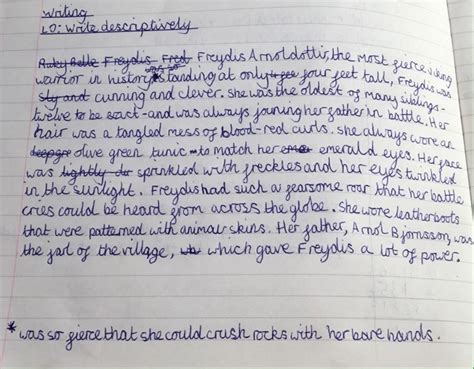 Writing
LO: Write descriptively
Ruby Belle Freydis Fred Freydis Arnoldottir, the most fierce viking
warrior in history* was so standing at only 4 fee four feet tall, Freydis was
sly and cunning and clever. she was the oldest of many siblings -
twelve to be exact - and was always joining her father in battle. Her
hair was a tangled mess of blood-red curls. she always wore an
olive green tunic to match her eme emerald eyes. Her face
was lightly du sprinkled with freckles and her eyes twinkled
in the sunlight. Freydis had such a fearsome roar that her battle
cries could be heard from across the globe. She wore leather boots
that were patterned with animal skins. Her father, Arnol Bjornsson, was
the jarl of the village, which gave Freydis a lot of power.
* was so fierce that she could crush rocks with her bare hands.